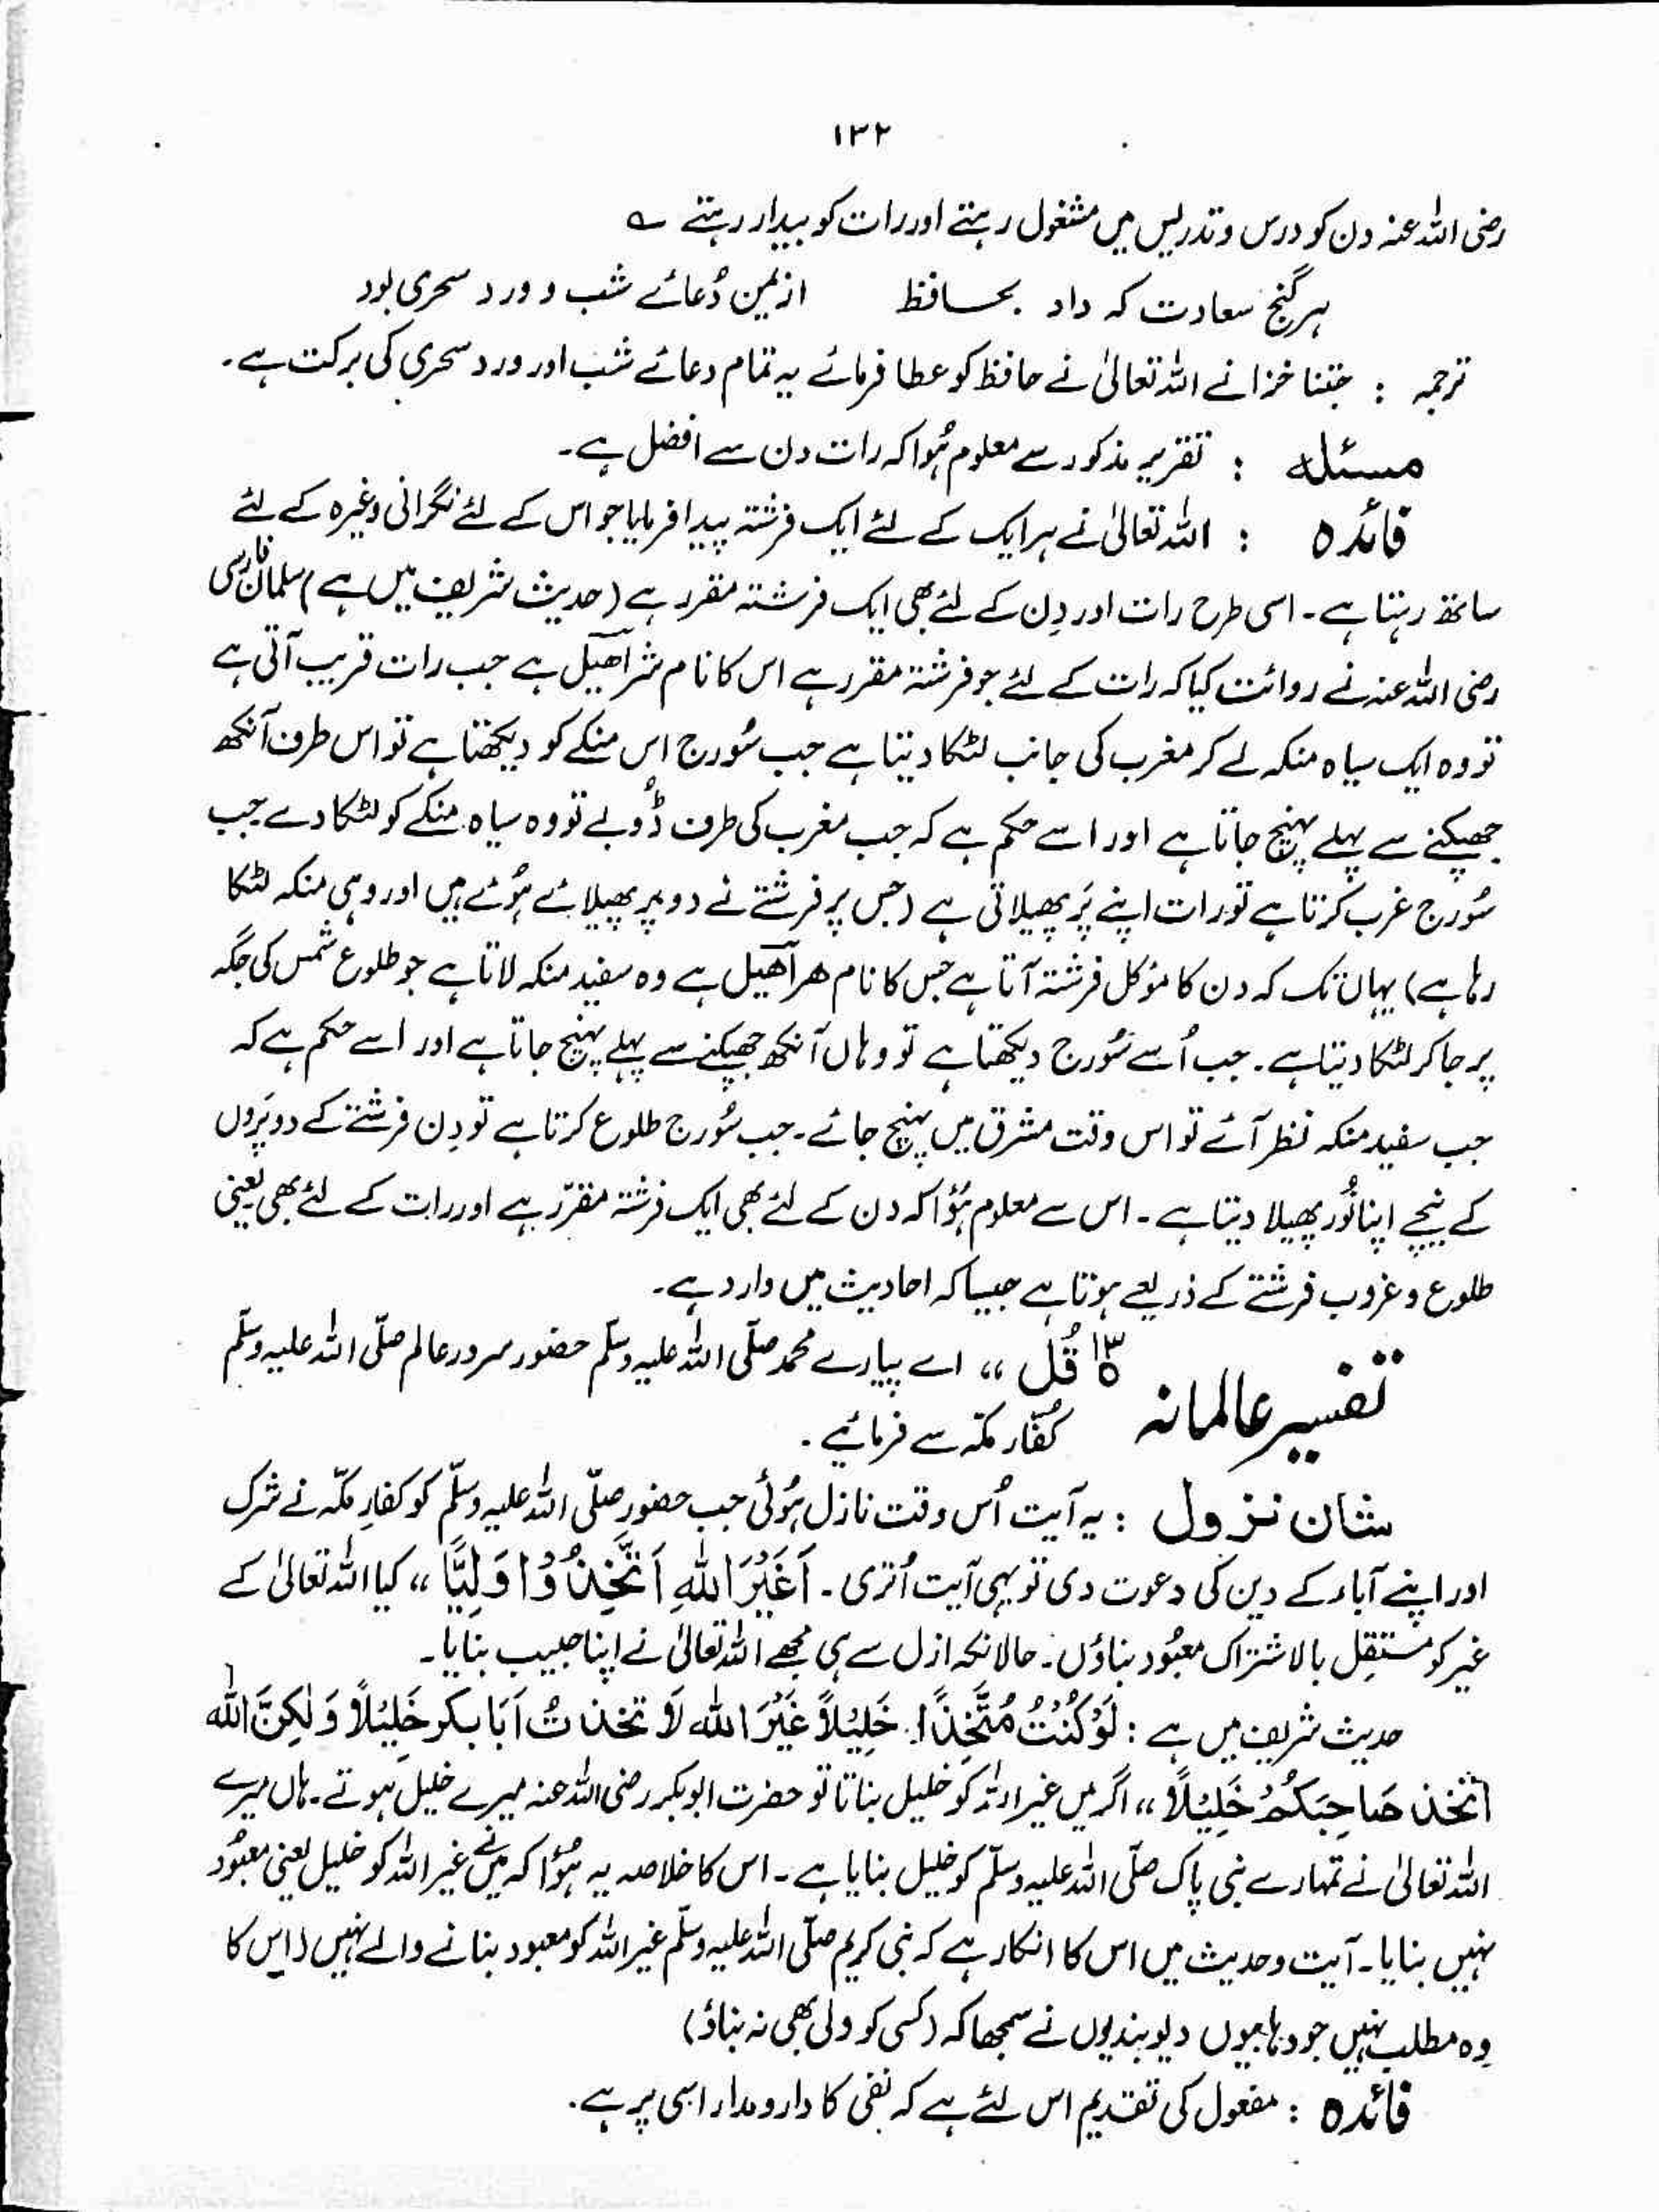 ۱۳۲
رضی اللہ عنہ دن کو درس و تدریس میں مشغول رہتے اور رات کو بیدار رہتے ؎
ہر گنج سعادت کہ داد بحافظ ازیمن دُعائے شب و ورد سحری بود
ترجمہ : جتنا خزانے اللہ تعالیٰ نے حافظ کو عطا فرمائے یہ تمام دعائے شب اور ورد سحری کی برکت ہے۔
مسئلہ : تقریر مذکور سے معلوم ہُوا کہ رات دن سے افضل ہے۔
فائدہ : اللہ تعالیٰ نے ہر ایک کے لئے ایک فرشتہ پیدا فرمایا جو اس کے لئے نگرانی وغیرہ کے لئے
ساتھ رہتا ہے۔ اسی طرح رات اور دِن کے لئے بھی ایک فرشتہ مقرر ہے (حدیث شریف میں ہے) سلمان فارسی
رضی اللہ عنہ نے روائت کیا کہ رات کے لئے جو فرشتہ مقرر ہے اس کا نام شرآھیل ہے جب رات قریب آتی ہے
تو وہ ایک سیاہ منکہ لے کر مغرب کی جانب لٹکا دیتا ہے جب سُورج اس منکے کو دیکھتا ہے تو اس طرف آنکھ
جھپکنے سے پہلے پہنچ جاتا ہے اور اسے حکم ہے کہ جب مغرب کی طرف ڈُوبے تو وہ سیاہ منکے کو لٹکا دے جب
سُورج غرب کرتا ہے تو رات اپنے پَر پھیلاتی ہے (جس پر فرشتے نے دو پر پھیلائے ہُوئے ہیں اور وہی منکہ لٹکا
رہا ہے) یہاں تک کہ دن کا مؤکل فرشتہ آتا ہے جس کا نام ھرآھیل ہے وہ سفید منکہ لاتا ہے جو طلوع شمس کی جگہ
پر جا کر لٹکا دیتا ہے۔ جب اُسے سُورج دیکھتا ہے تو وہاں آنکھ جھپکنے سے پہلے پہنچ جاتا ہے اور اسے حکم ہے کہ
جب سفید منکہ نظر آئے تو اس وقت مشرق میں پہنچ جائے۔ جب سُورج طلوع کرتا ہے تو دِن فرشتے کے دو پَروں
کے نیچے اپنا نُور پھیلا دیتا ہے۔ اس سے معلوم ہُؤا کہ دن کے لئے بھی ایک فرشتہ مقرّر ہے اور رات کے لئے بھی یعنی
طلوع و غروب فرشتے کے ذریعے ہوتا ہے جیسا کہ احادیث میں وارد ہے۔
تفسیر عالمانہ قُل ،، اے پیارے محمد صلّی اللہ علیہ وسلّم حضور سرور عالم صلّی اللہ علیہ وسلّم
کُفّار مکّہ سے فرمائیے۔
شان نزول : یہ آیت اُس وقت نازل ہُوئی جب حضور صلّی اللہ علیہ وسلّم کو کفارِ مکّہ نے شرک
اور اپنے آباء کے دین کی دعوت دی تو یہی آیت اُتری۔ اَغَیْرَ اللہِ اَتَّخِذُ وُا وَلِیًّا ،، کیا اللہ تعالیٰ کے
غیر کو مستقِل بالاشتراک معبُود بناؤں۔ حالانکہ ازل سے ہی مجھے اللہ تعالیٰ نے اپنا حبیب بنایا۔
حدیث شریف میں ہے : لَوْ کُنْتُ مُتَّخِذًا خَلِیْلاً غَیْرَ اللہ لَاَ تخذتُ اَبَا بکر خَلِیْلاً وَلٰکِنَّ اللہ
اتّخذ صَاحِبَکُمْ خَلِیْلاً ،، اگر میں غیر اللہ کو خلیل بناتا تو حضرت ابوبکر رضی اللہ عنہ میرے خلیل ہوتے۔ ہاں میرے
اللہ تعالیٰ نے تمہارے نبی پاک صلّی اللہ علیہ وسلّم کو خلیل بنایا ہے۔ اس کا خلاصہ یہ ہُؤا کہ میں نے غیر اللہ کو خلیل یعنی معبُود
نہیں بنایا۔ آیت و حدیث میں اس کا انکار ہے کہ نبی کریم صلّی اللہ علیہ وسلّم غیر اللہ کو معبود بنانے والے نہیں (اس کا
وہ مطلب نہیں جو وہابیوں دیوبندیوں نے سمجھا کہ (کسی کو ولی بھی نہ بناؤ)
فائدہ : مفعول کی تقدیم اس لئے ہے کہ نفی کا دارومدار اسی پر ہے۔